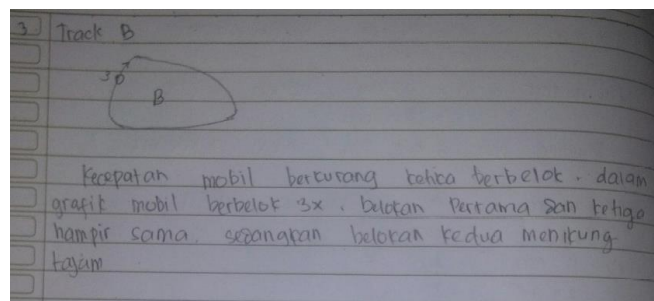 3. Track B
3
B
Kecepatan mobil berkurang ketika berbelok. dalam
grafik mobil berbelok 3x. belokan Pertama dan ketiga
hampir sama. sedangkan belokan kedua menikung
tajam